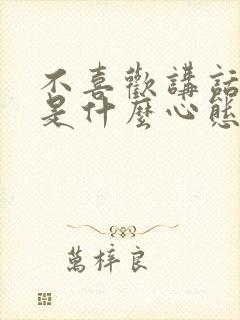 不喜歡講話
是什麼心態
萬梓良